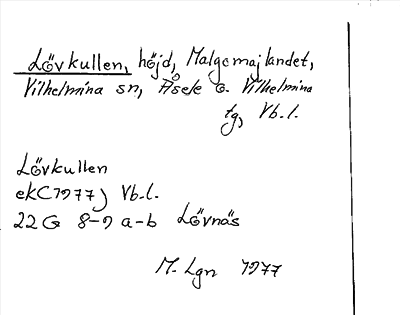 Lövkullen, höjd, Malgomajlandet,
Vilhelmina sn, Åsele o. Vilhelmina
tg, Vb.l.
Lövkullen
ekC1977) Vb.l.
22G 8-9 a-b Lövnäs
M. Lgn 1977